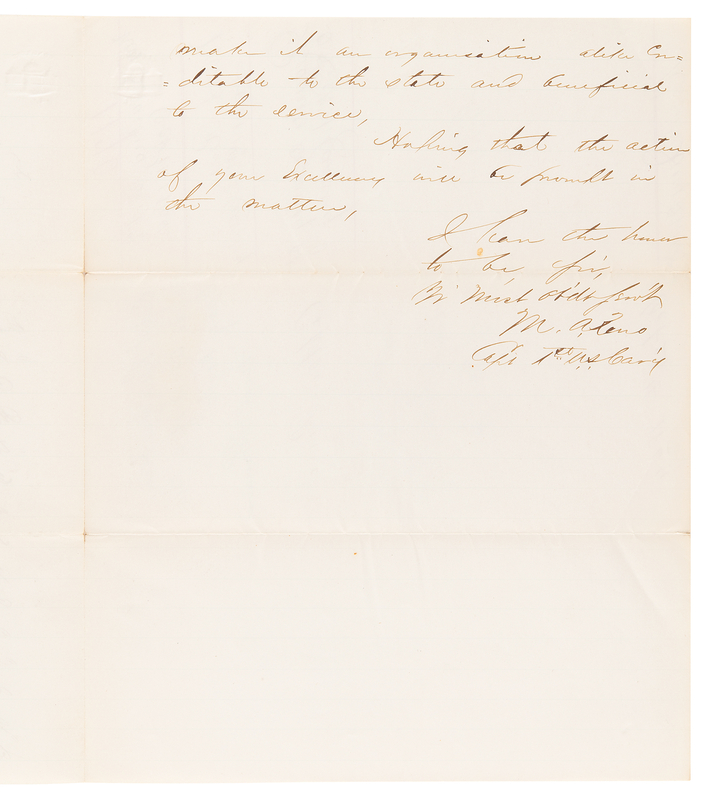 make it an organisation alike Cre=
=ditable to the state and beneficial
to the service,
Hoping that the action
of your Excellency will be prompt in
the matter,
I have the honor
to be, Sir,
Yr Most Obdt Servt
M. A. Reno
Capt 1st U.S. Cav'y